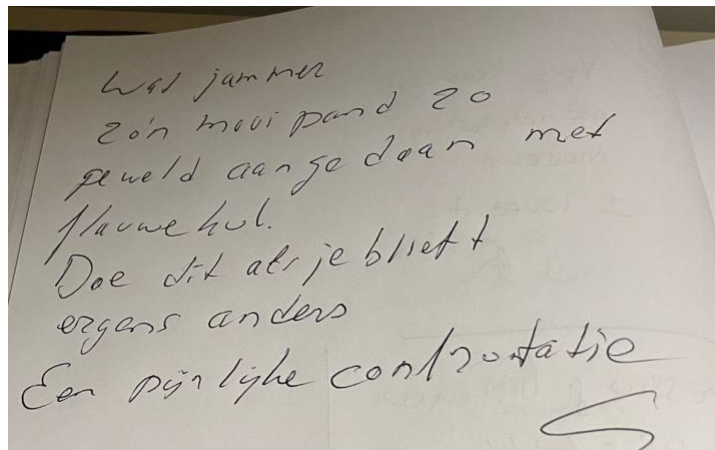 Wat jammer
zo'n mooi pand zo
geweld aangedaan met
flauwe kul.
Doe dit alsjeblieft
ergens anders
Een pijnlijke confrontatie